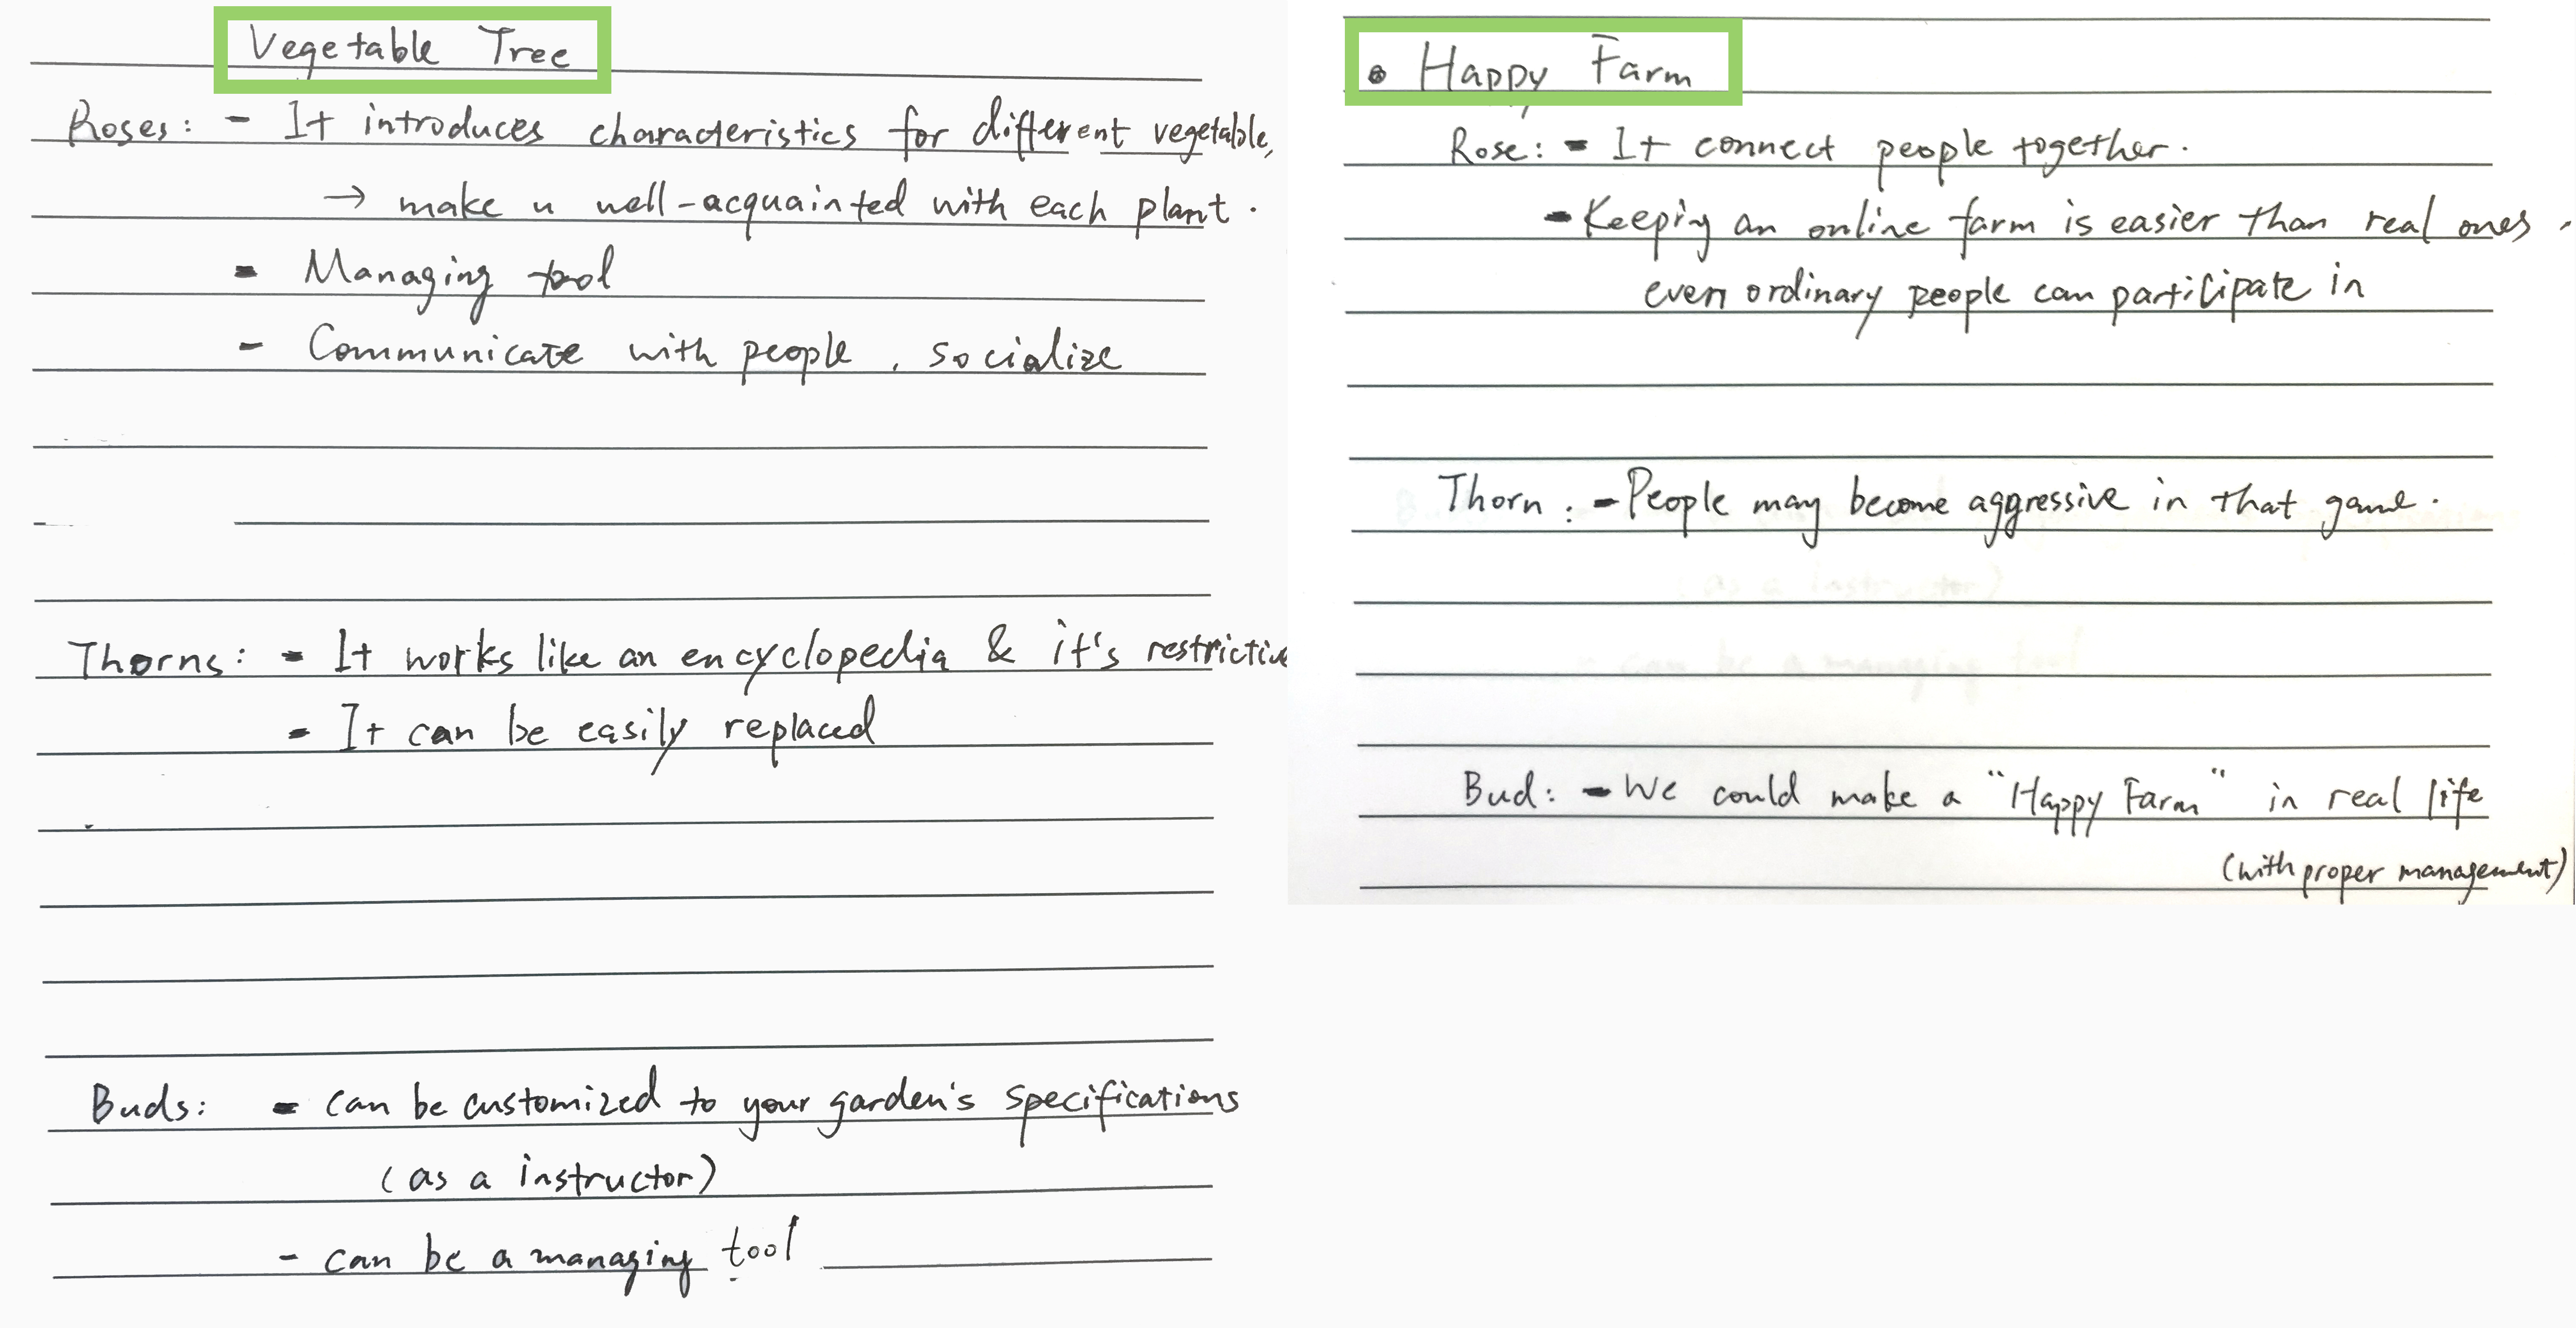 Vegetable Tree
Roses: - It introduces characteristics for different vegetable,
→ make u well-acquainted with each plant.
- Managing tool
- Communicate with people, socialize
Thorns: - It works like an encyclopedia & it's restrictive
- It can be easily replaced
Buds: - can be customized to your garden's specifications
(as a instructor)
- can be a managing tool
• Happy Farm
Rose: - It connect people together.
- Keeping an online farm is easier than real ones,
even ordinary people can participate in
Thorn: - People may become aggressive in that game.
Bud: - We could make a "Happy Farm" in real life
(with proper management)